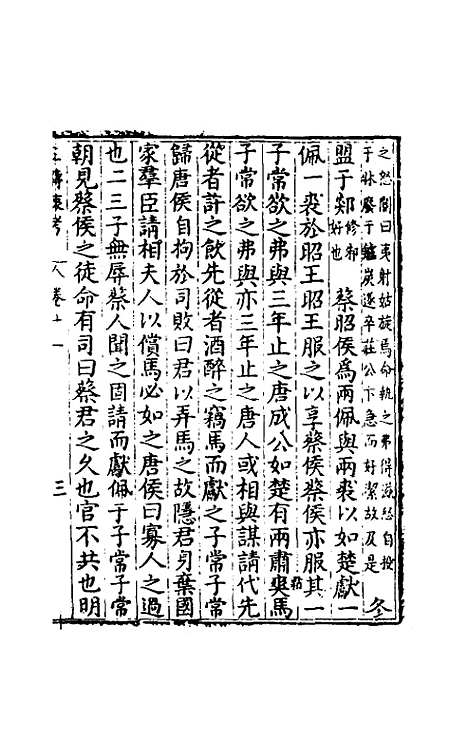 之怒閽曰夷射姑旋焉命執之弗得滋怒自投
于牀廢于鑪炭遂卒莊公卞急而好潔故及是
冬
盟于郯修邾好也 蔡昭侯爲兩佩與兩裘以如楚獻一
佩一裘於昭王昭王服之以享蔡侯蔡侯亦服其一
子常欲之弗與三年止之唐成公如楚有兩肅爽馬
子常欲之弗與亦三年止之唐人或相與謀請代先
從者許之飲先從者酒醉之竊馬而獻之子常子常
歸唐侯自拘於司敗曰君以弄馬之故隱君身棄國
家羣臣請相夫人以償馬必如之唐侯曰寡人之過
也二三子無辱蔡人聞之固請而獻佩于子常子常
朝見蔡侯之徒命有司曰蔡君之久也官不共也明
傳衷考 卷十一 三